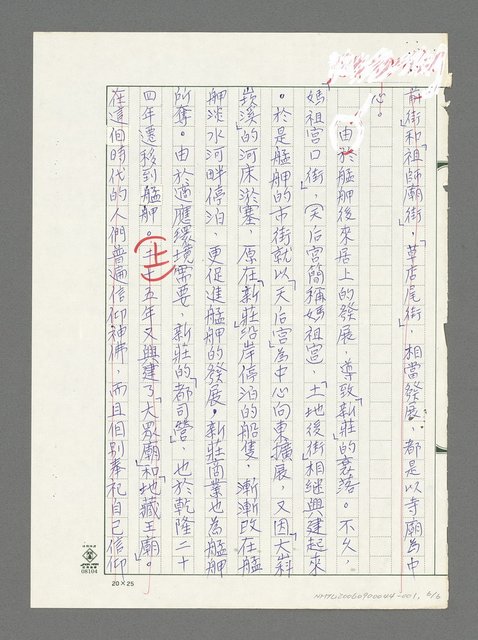 前街」和「祖師廟街」，「草店尾街」，相當發展，都是以寺廟為中
心。
由於艋舺後來居上的發展，導致「新莊」的衰落。不久，
媽祖宮口街」，（天后宮簡稱媽祖宮），「土地後街」相繼興建起來
。於是艋舺的市街就以「天后宮」為中心向東擴展，又因「大嵙
崁溪」的河床淤塞，原在「新莊」沿岸停泊的船隻，漸漸改在艋
舺淡水河畔停泊，更促進艋舺的發展，新莊商業也為艋舺
所奪。由於適應環境需要，新莊的「都司營」，也於乾隆二十
四年遷移到艋舺。二十五年又興建了「大眾廟」和「地藏王廟」。
在這個時代的人們普遍信仰神佛，而且個別奉祀自己信仰
08104
20×25
NMTL20060900044-001, 6/6